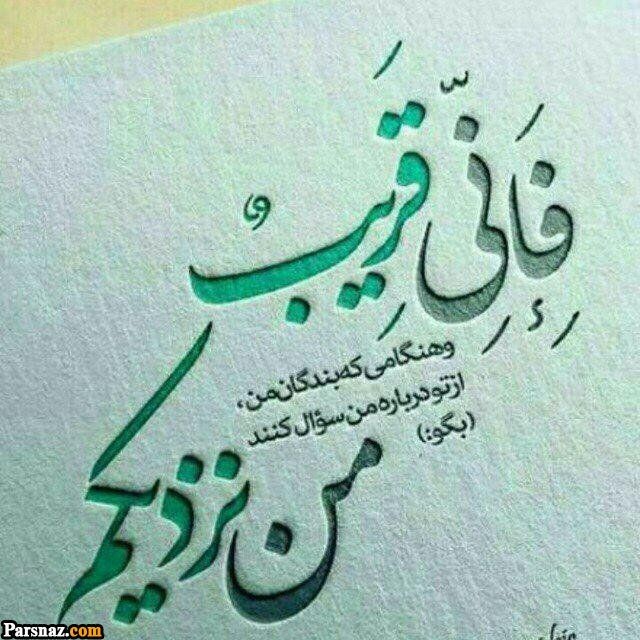 فَإِنِّی قَرِیبٌ
وهنگامی که بندگان من،
از تو درباره من سؤال کنند
(بگو:)
من نزدیکم
Parsnaz.com